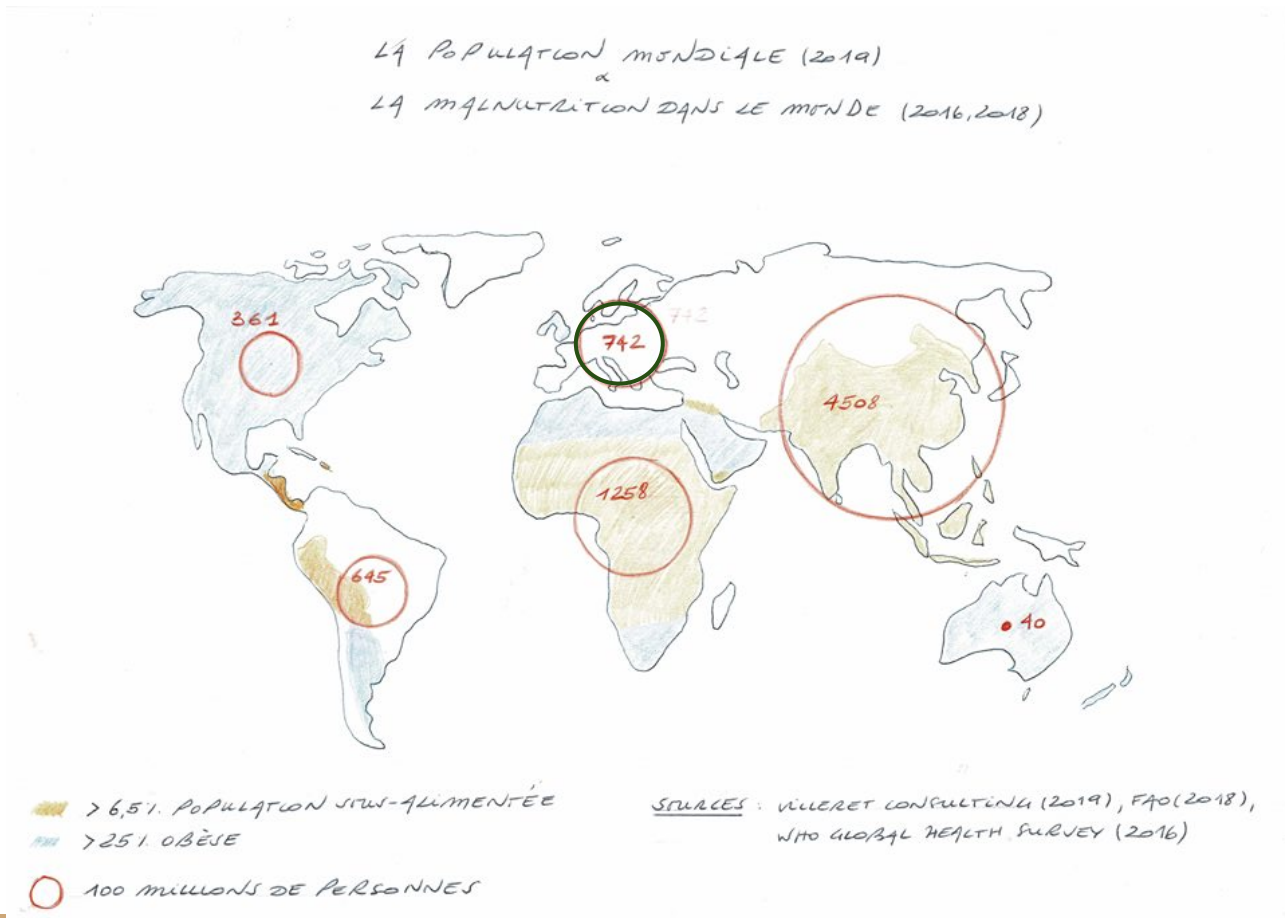 LA POPULATION MONDIALE (2019)
&
LA MALNUTRITION DANS LE MONDE (2016, 2018)
361
742
742
4508
1258
645
40
> 6,5% POPULATION SOUS-ALIMENTÉE
> 25% OBÈSE
100 MILLIONS DE PERSONNES
SOURCES : VILLERET CONSULTING (2019), FAO (2018),
WHO GLOBAL HEALTH SURVEY (2016)